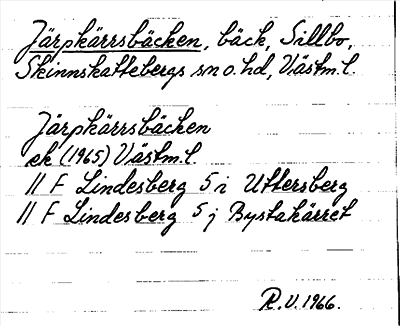 Järpkärrsbäcken, bäck, Sillbo,
Skinnskattebergs sn o. hd, Västm. l.
Järpkärrsbäcken
ek (1965) Västm. l.
11 F Lindesberg 5 i Uttersberg
11 F Lindesberg 5 j Bystakärret
R.V. 1966.